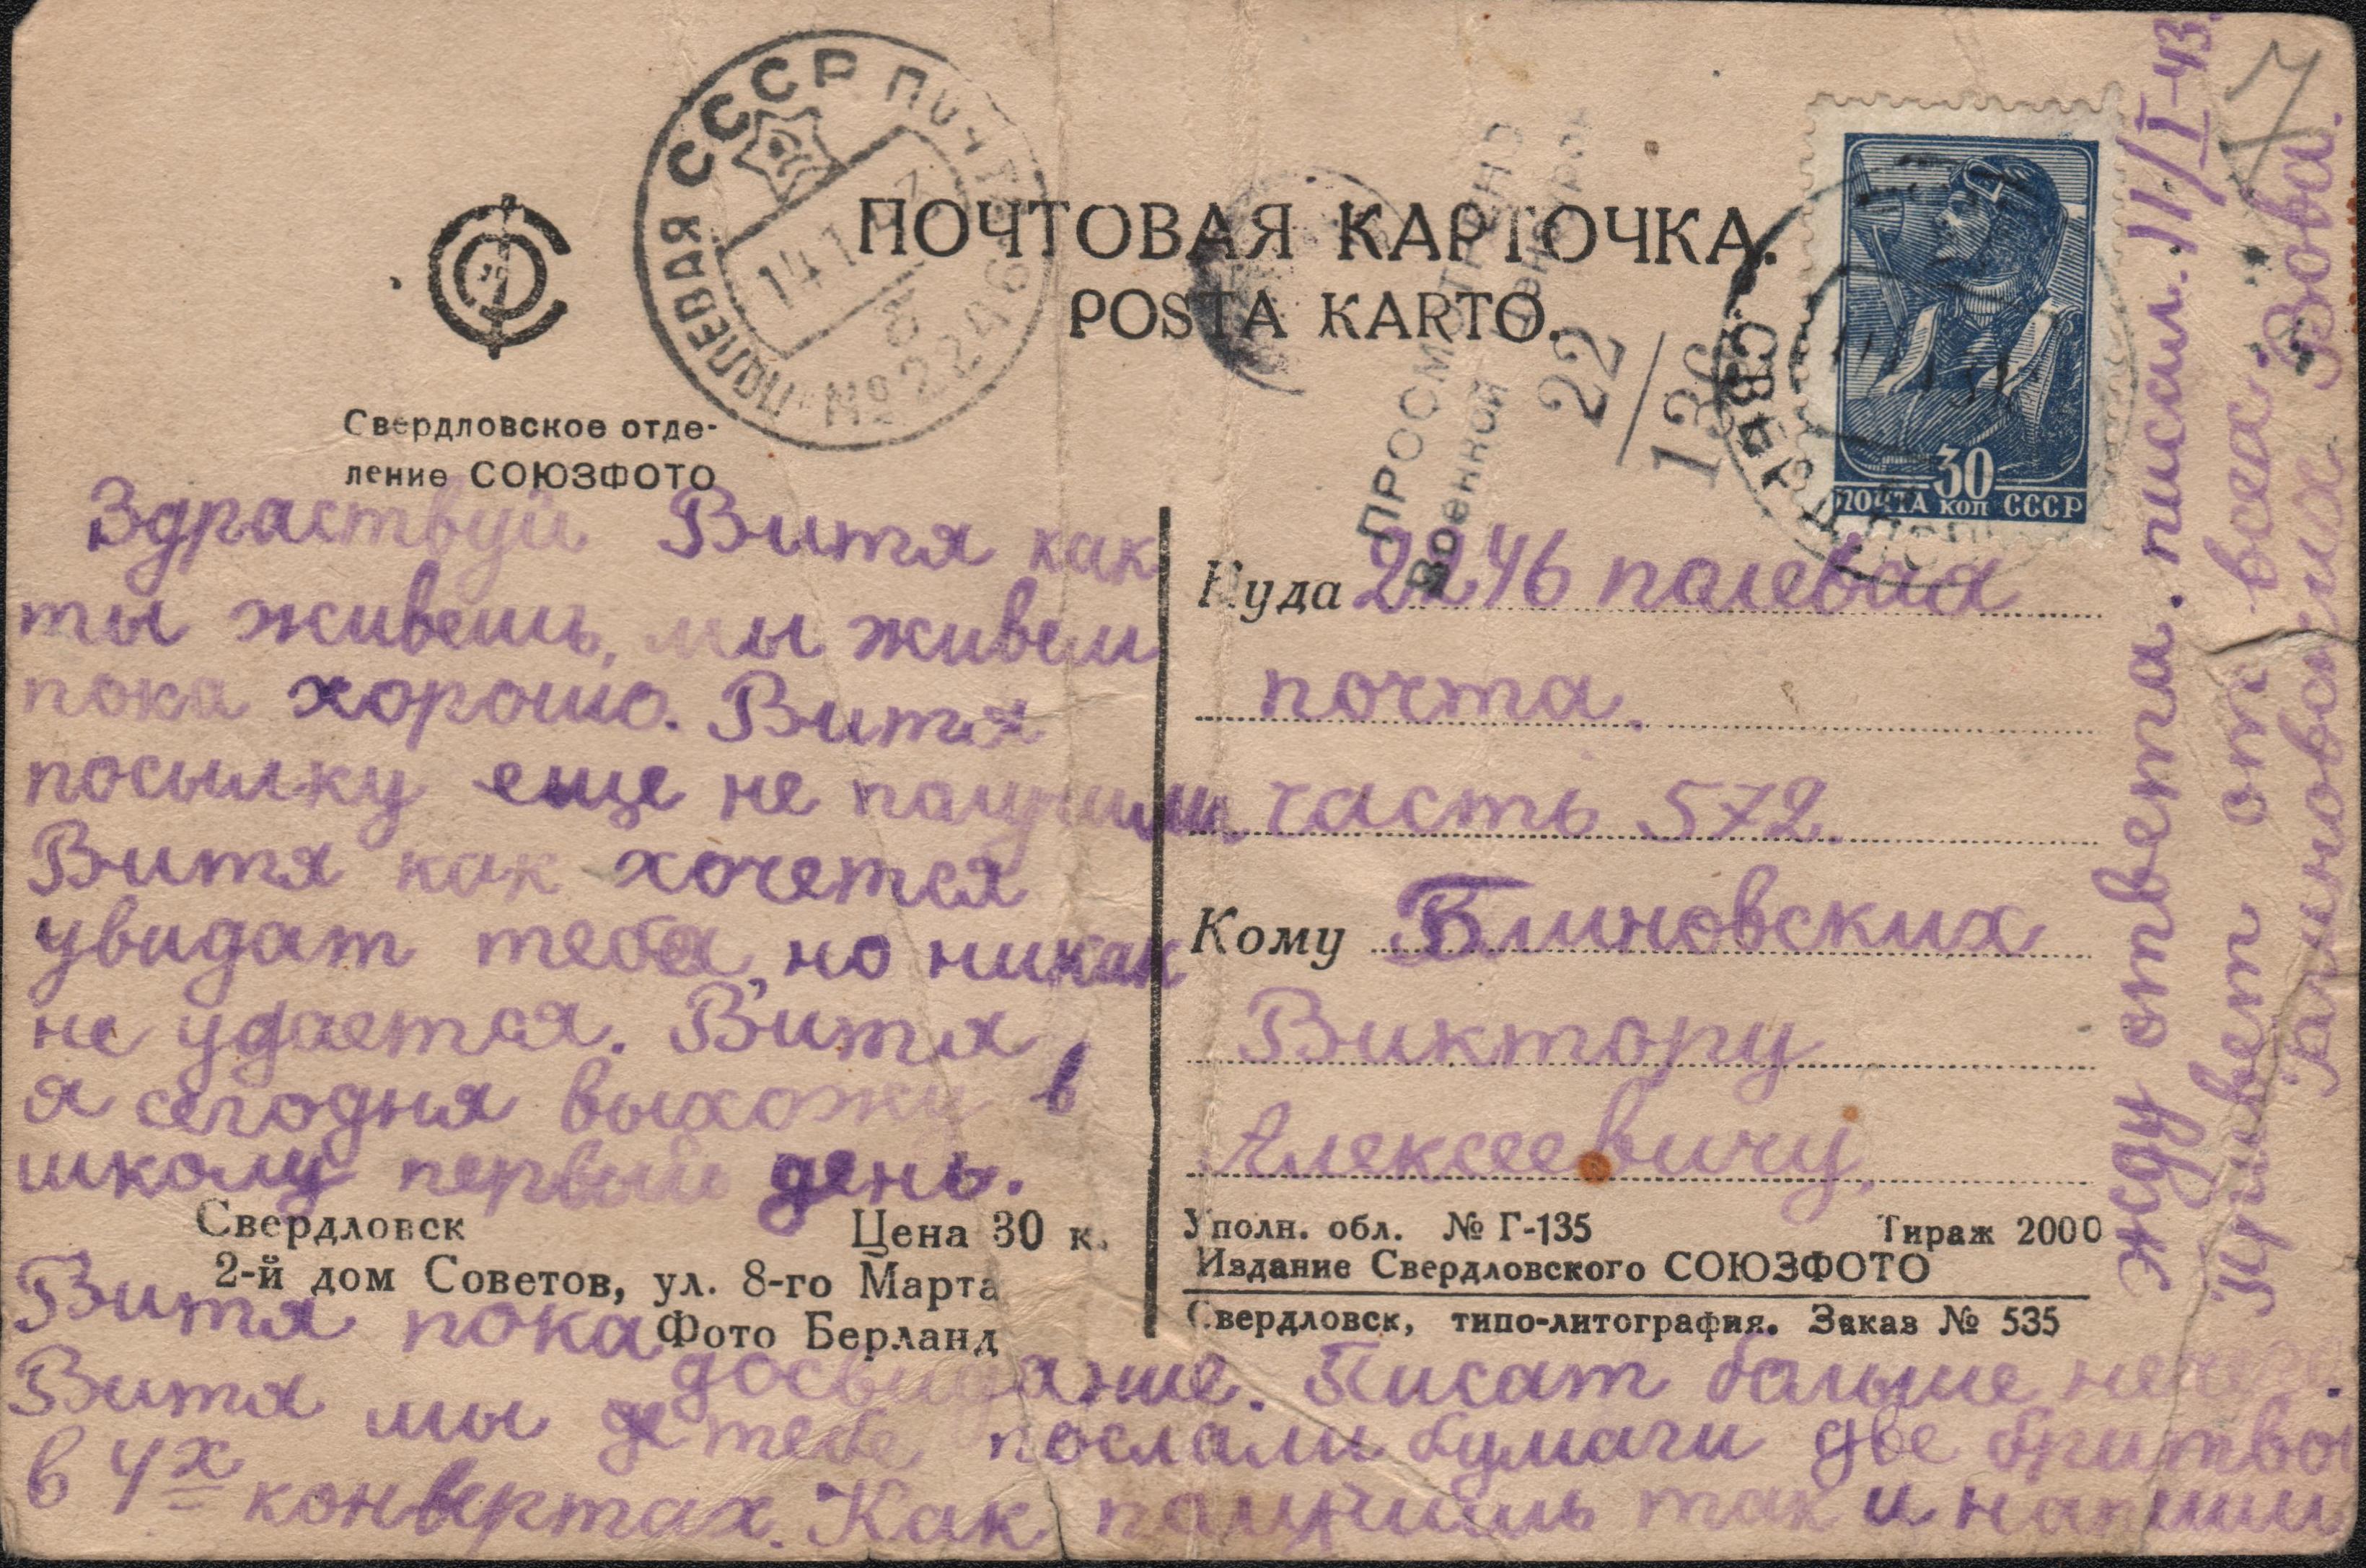 СССР ПОЧТА
ПОЛЕВАЯ
14 1 43
б
№ 2246
ПОЧТОВАЯ КАРТОЧКА.
POSTA KARTO.
ПРОСМОТРЕНО
Военной Цензурой
22
136
30
ПОЧТА коп СССР
7
Свердловское отде-
ление СОЮЗФОТО
Здраствуй Витя как
ты живешь, мы живем
пока хорошо. Витя
посылку еще не получили
Витя как хочется
увидат тебя, но никак
не удается. Витя
я сегодня выхожу в
школу первый день.
Свердловск Цена 30 к.
2-й дом Советов, ул. 8-го Марта
Фото Берланд
Витя пока досвидание. Писат больше нечего.
Витя мы тебе послали бумаги две бритвы
в 4х конвертах. Как получишь так и напиши
Куда 2246 полевая
почта.
часть 572.
Кому Блиновских
Виктору
Алексеевичу
Уполн. обл. № Г-135 Тираж 2000
Издание Свердловского СОЮЗФОТО
Свердловск, типо-литография. Заказ № 535
жду ответа. писал. 11/I-43.
Привет от всех.
Блиновских Вова.